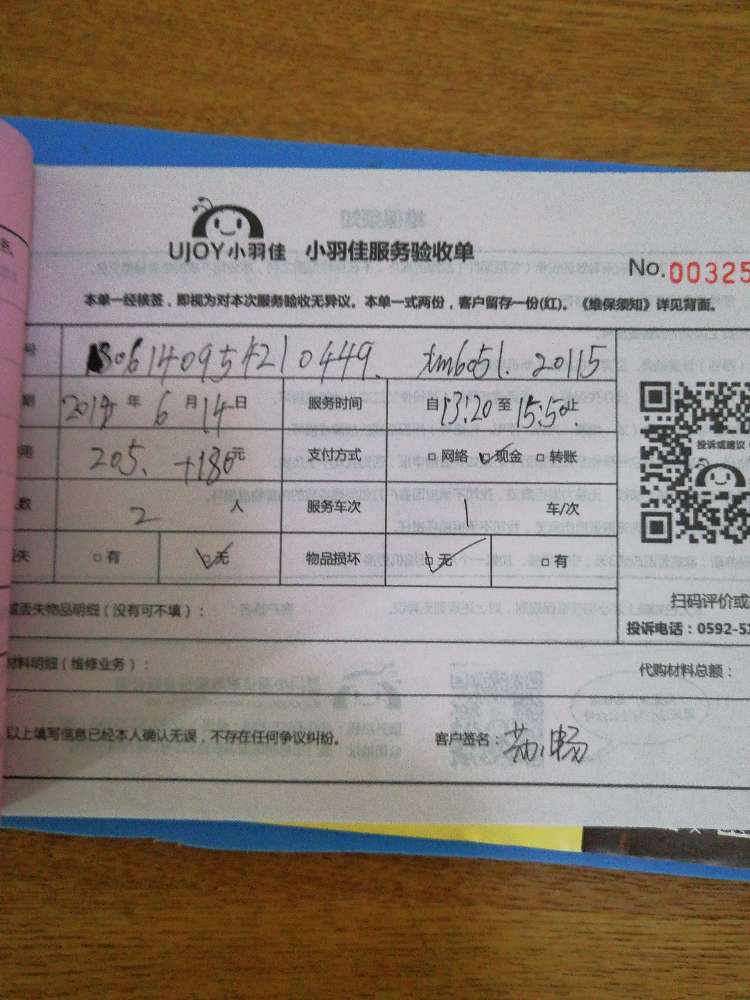 UJOY小羽佳 小羽佳服务验收单
No.00325
本单一经核签，即视为对本次服务验收无异议。本单一式两份，客户留存一份(红)。《维保须知》详见背面。
号 1806140954210449. xm6051. 20115
期 2018年6月14日 服务时间 自13:20至15:50止
用 205. +180元 支付方式 □网络 ☑现金 □转账
人数 2人 服务车次 1 车/次
丢失 □有 ☑无 物品损坏 ☑无 □有
投诉或建议
或丢失物品明细（没有可不填）：
扫码评价或
投诉电话：0592-51
材料明细（维修业务）： 代购材料总额：
以上填写信息已经本人确认无误，不存在任何争议纠纷。 客户签名：